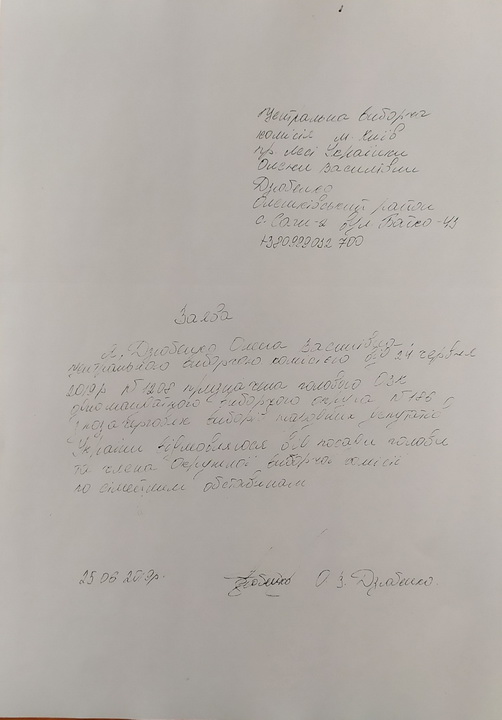 Центральна виборча
комісія м. Київ
пр. Лесі Українки
Олени Василівни
Дзюбенко
Олешківський район
с. Саги-2 вул Бойко-43
+380999032 700
Заява
Я, Дзюбенко Олена Василівна
Центральною виборчою комісією від 24 червня
2019р № 1208 призначена головою ОВК
одномандатного виборчого округа №186 з
позачергових виборів народних депутатів
України відмовляюся від посади голови
та члена окружної виборчої комісії
по сімейним обставинам
25 06 2019р. О В. Дзюбенко.